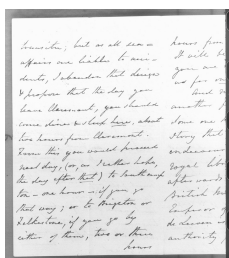 transitu; but as all sea
affairs are liable to acci-
dents, I abandon that design
& propose that the day you
leave Claremont, you should
come dine & sleep here, about
two hours from Claremont.
From this you would proceed
next day, (or, as I rather hope,
the day after that) to Southampton
ton - one hour - if you go
that way; or to Brighton or
Folkestone, if you go by
either of them, two or three
hours
hours from
It will be
you are
as for
and
another
Some one
Story that
undeceive
royal
afterwards
British
Emperor of
authority